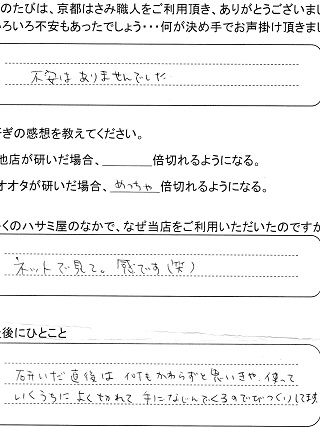 のたびは、京都はさみ職人をご利用頂き、ありがとうございまし
いろいろ不安もあったでしょう・・・何が決め手でお声掛け頂きまし
不安はありませんでした
ぎの感想を教えてください。
他店が研いだ場合、______倍切れるようになる。
オオタが研いだ場合、めっちゃ倍切れるようになる。
くのハサミ屋のなかで、なぜ当店をご利用いただいたのですか
ネットで見て。感です(笑)
後にひとこと
研いだ直後は何もかわらずと思いきや、使って
いくうちによく切れて手になじんでくるのでびっくりして